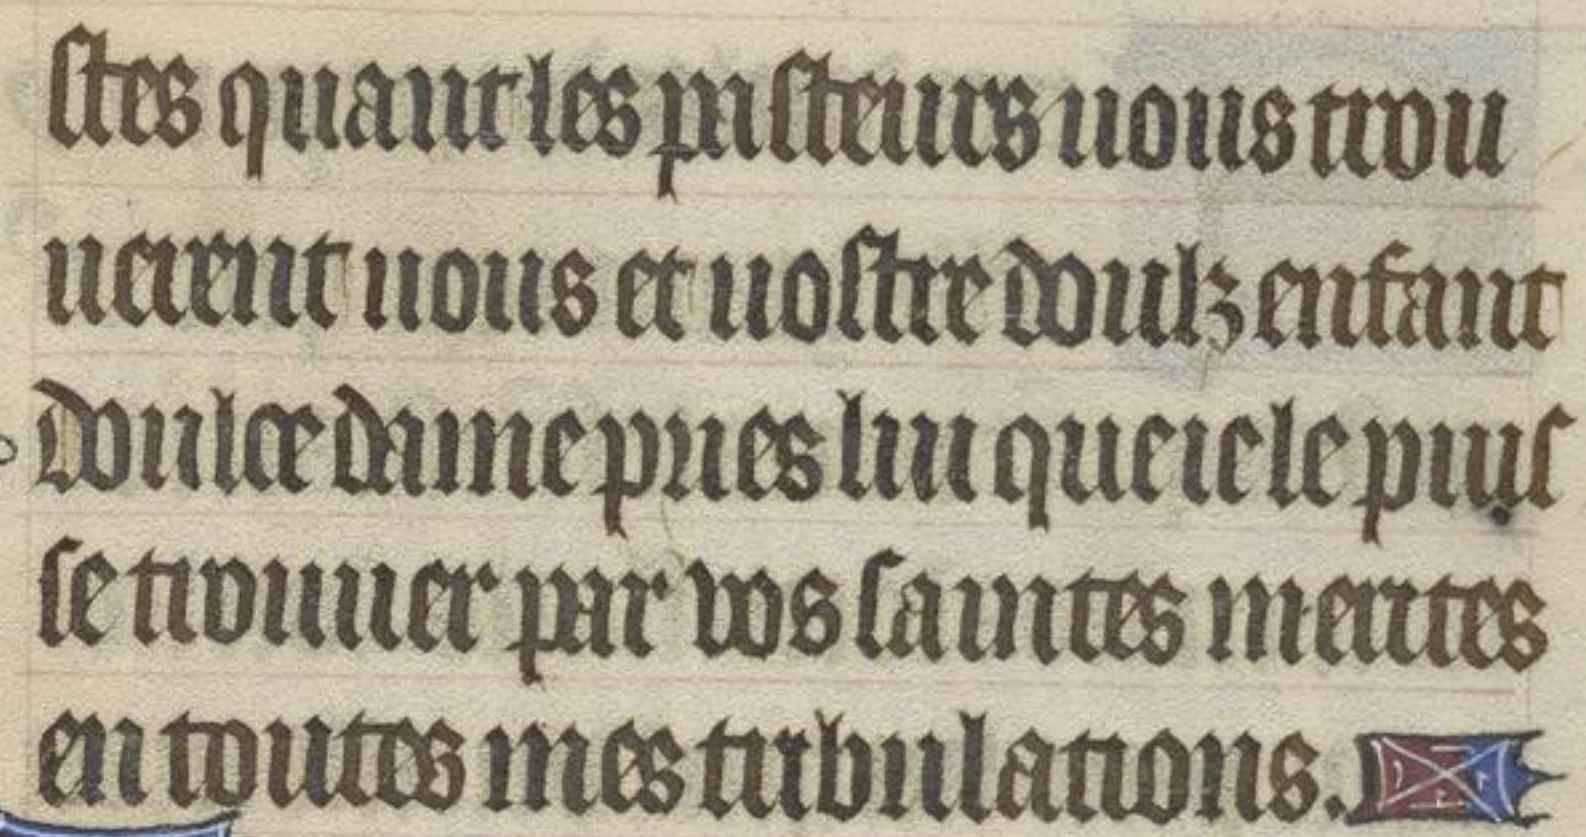 stes quant les pasteurs uous trou
uerent uous et uostre doulz enfant
doulce dame pries lui que ie le puis
se trouuer par vos saintes merites
en toutes mes tribulations.